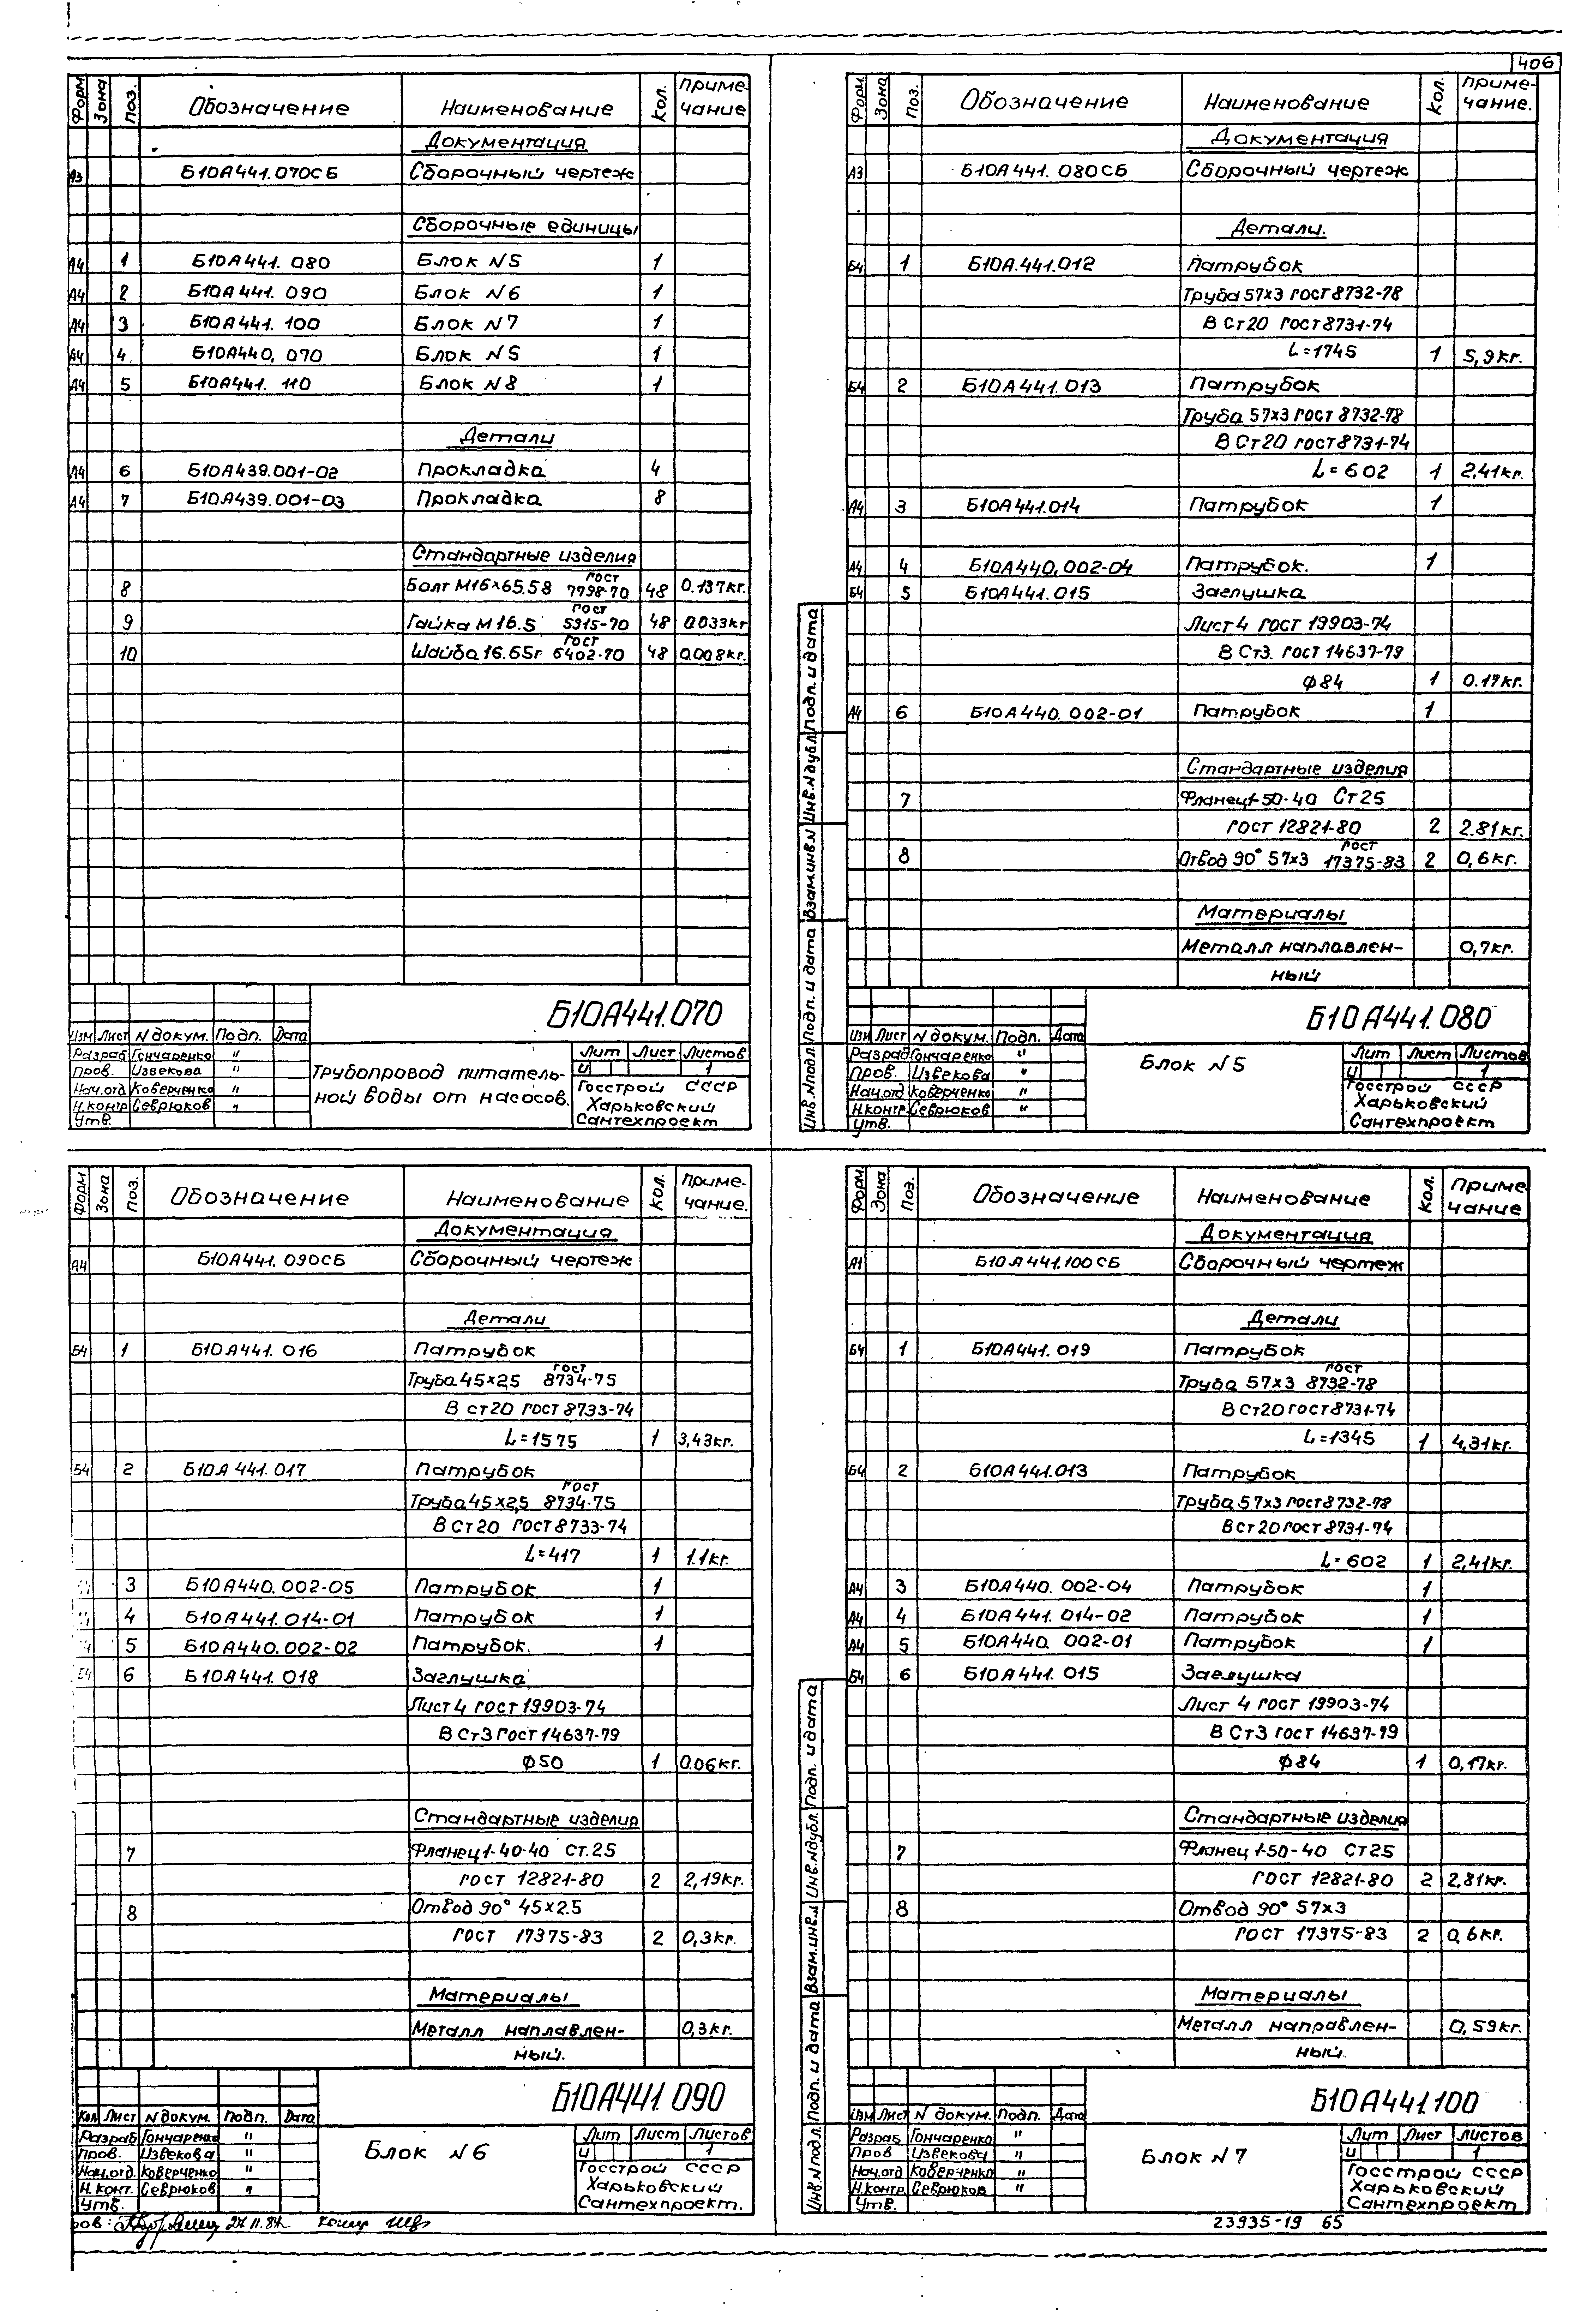 406
Форм Зона Поз. Обозначение Наименование Кол. Приме-чание
Документация
А3 Б10А441.070СБ Сборочный чертеж
Сборочные единицы
А4 1 Б10А441. 080 Блок N5 1
А4 2 Б10А441. 090 Блок N6 1
А4 3 Б10А441. 100 Блок N7 1
А4 4 Б10А440, 070 Блок N5 1
А4 5 Б10А441. 110 Блок N8 1
Детали
А4 6 Б10А439.001-02 Прокладка 4
А4 7 Б10А439.001-03 Прокладка 8
Стандартные изделия
8 Болт М16×65.58 ГОСТ 7798-70 48 0.137кг.
9 Гайка М16.5 ГОСТ 5915-70 48 0.033кг
10 Шайба 16.65г ГОСТ 6402-70 48 0,008кг.
Б10А441.070
Изм Лист N докум. Подп. Дата
Разраб Гончаренко "
Пров. Извекова "
Нач.отд Коверченко "
Н.контр Севрюков "
Утв.
Трубопровод питатель-
ной воды от насосов.
Лит Лист Листов
И 1
Госстрой СССР
Харьковский
Сантехпроект
Форм Зона Поз. Обозначение Наименование Кол. Приме-чание.
Документация
А3 Б10А441. 080СБ Сборочный чертеж
Детали.
Б4 1 Б10А.441.012 Патрубок
Труба 57×3 ГОСТ 8732-78
В Ст20 ГОСТ 8731-74
L=1745 1 5,9кг.
Б4 2 Б10А441.013 Патрубок
Труба 57×3 ГОСТ 8732-78
В Ст20 ГОСТ 8731-74
L=602 1 2,41кг.
А4 3 Б10А441.014 Патрубок 1
А4 4 Б10А440,002-04 Патрубок. 1
Б4 5 Б10А441.015 Заглушка
Лист 4 ГОСТ 19903-74
В Ст3. ГОСТ 14637-79
Ф84 1 0.17кг.
А4 6 Б10А440.002-01 Патрубок 1
Стандартные изделия
7 Фланец 1-50-40 Ст25
ГОСТ 12821-80 2 2.81кг.
8 Отвод 90° 57×3 ГОСТ 17375-83 2 0,6кг.
Материалы
Металл наплавлен- 0,7кг.
ный
Инв.Nподл. Подп. и дата Взам.инв.N Инв.Nдубл. Подп. и дата
Б10А441.080
Изм Лист N докум. Подп. Дата
Разраб Гончаренко "
Пров. Извекова "
Нач.отд Коверченко "
Н.контр Севрюков "
Утв.
Блок N5
Лит Лист Листов
И 1
Госстрой СССР
Харьковский
Сантехпроект
Форм Зона Поз. Обозначение Наименование Кол. Приме-чание.
Документация
А4 Б10А441. 090СБ Сборочный чертеж
Детали
Б4 1 Б10А441. 016 Патрубок
Труба 45×2,5 ГОСТ 8734-75
В ст20 ГОСТ 8733-74
L=1575 1 3,43кг.
Б4 2 Б10А441.017 Патрубок
Труба 45×2,5 ГОСТ 8734-75
В Ст20 ГОСТ 8733-74
L=417 1 1.1кг.
3 Б10А440.002-05 Патрубок 1
4 Б10А441.014-01 Патрубок 1
5 Б10А440.002-02 Патрубок. 1
Б4 6 Б10А441.018 Заглушка
Лист 4 ГОСТ 19903-74
В Ст3 ГОСТ 14637-79
Ф50 1 0.06кг.
Стандартные изделия
7 Фланец 1-40-40 Ст.25
ГОСТ 12821-80 2 2,19кг.
8 Отвод 90° 45×2.5
ГОСТ 17375-83 2 0,3кг.
Материалы
Металл наплавлен- 0,3кг.
ный.
Б10А441.090
Кол Лист N докум. Подп. Дата
Разраб Гончаренко "
Пров. Извекова "
Нач.отд. Коверченко "
Н.конт. Севрюков "
Утв.
Блок N6
Лит Лист Листов
И 1
Госстрой СССР
Харьковский
Сантехпроект.
Форм Зона Поз. Обозначение Наименование Кол. Приме чание
Документация
А1 Б10А441.100СБ Сборочный чертеж
Детали
Б4 1 Б10А441.019 Патрубок
Труба 57×3 ГОСТ 8732-78
В Ст20 ГОСТ 8731-74
L=1345 1 4,31кг.
Б4 2 Б10А441.013 Патрубок
Труба 57×3 ГОСТ 8732-78
В ст20 ГОСТ 8731-74
L=602 1 2,41кг.
А4 3 Б10А440.002-04 Патрубок 1
А4 4 Б10А441.014-02 Патрубок 1
А4 5 Б10А440. 002-01 Патрубок 1
Б4 6 Б10А441. 015 Заглушка
Лист 4 ГОСТ 19903-74
В Ст3 ГОСТ 14637-79
Ф84 1 0,17кг.
Стандартные изделия
7 Фланец 1-50-40 Ст25
ГОСТ 12821-80 2 2,81кг.
8 Отвод 90° 57×3
ГОСТ 17375-83 2 0,6кг.
Материалы
Металл направлен- 0,59кг.
ный.
Инв.Nподл. Подп. и дата Взам.инв.N Инв.Nдубл. Подп. и дата
Б10А441.100
Изм Лист N докум. Подп. Дата
Разраб Гончаренко "
Пров Извекова "
Нач.отд Коверченко "
Н.контр Севрюков "
Утв.
Блок N7
Лит Лист Листов
И 1
Госстрой СССР
Харьковский
Сантехпроект
23935-19 65